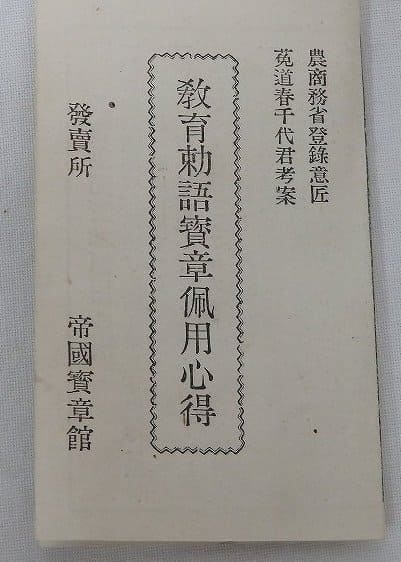 農商務省登錄意匠
菟道春千代君考案
教育勅語寶章佩用心得
發賣所　帝國寶章館